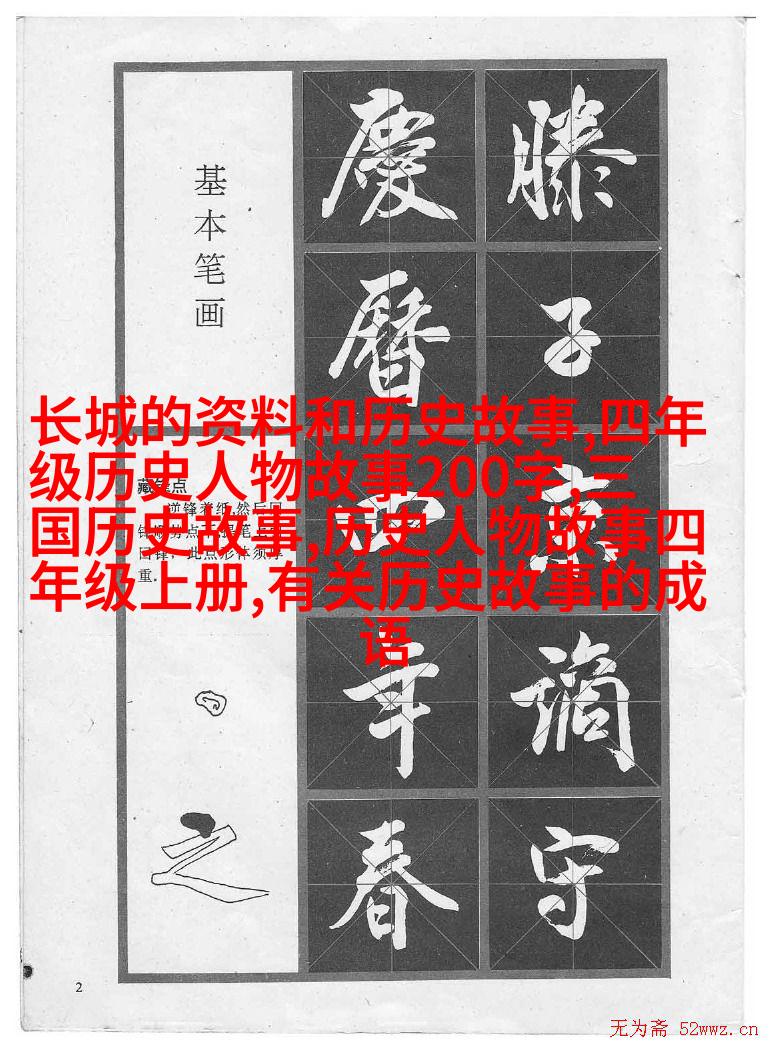 基本笔画
慶曆四年春
滕子京謫守
长城的资料和历史故事,四年
级历史人物故事200字,三
国历史故事,历史人物故事四
年级上册,有关历史故事的成
语
点
逆锋着纸,然后回
回锋,此点形体须厚
重.
之
2
无为斋 52wwz.cn